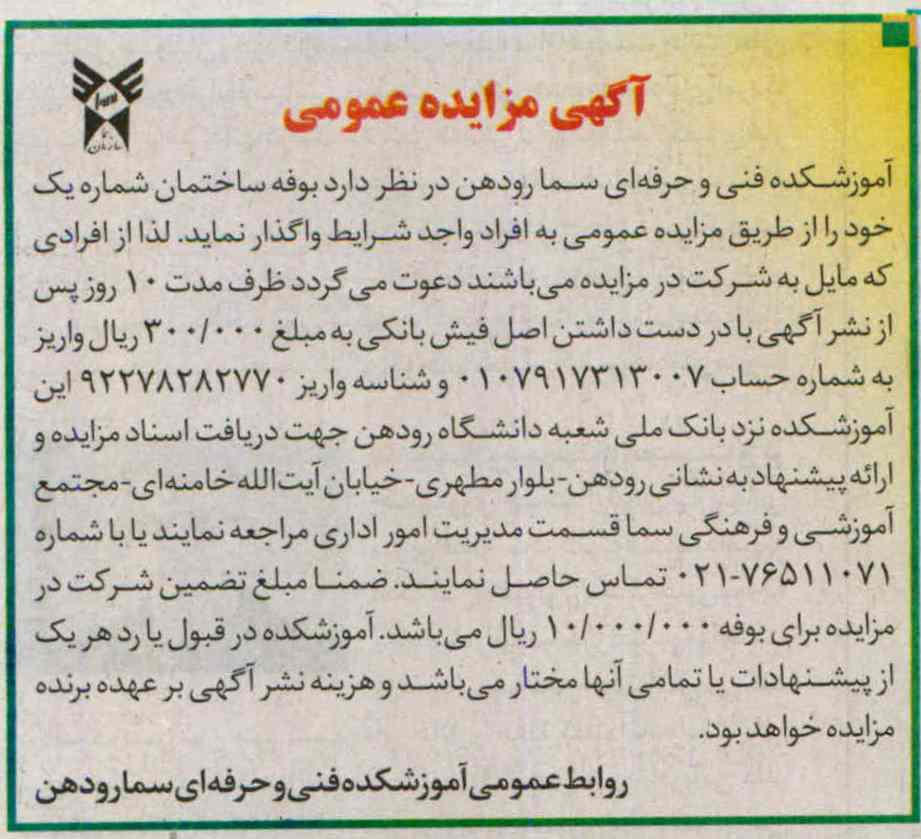 آگهی مزایده عمومی
سما
سازمان
آموزشکده فنی و حرفه‌ای سما رودهن در نظر دارد بوفه ساختمان شماره یک
خود را از طریق مزایده عمومی به افراد واجد شرایط واگذار نماید. لذا از افرادی
که مایل به شرکت در مزایده می‌باشند دعوت می گردد ظرف مدت ۱۰ روز پس
از نشر آگهی با در دست داشتن اصل فیش بانکی به مبلغ ۳۰۰/۰۰۰ ریال واریز
به شماره حساب ۰۱۰۷۹۱۷۳۱۳۰۰۷ و شناسه واریز ۹۲۲۷۸۲۸۲۷۷۰ این
آموزشکده نزد بانک ملی شعبه دانشگاه رودهن جهت دریافت اسناد مزایده و
ارائه پیشنهاد به نشانی رودهن-بلوار مطهری-خیابان آیت‌الله خامنه‌ای-مجتمع
آموزشی و فرهنگی سما قسمت مدیریت امور اداری مراجعه نمایند یا با شماره
۰۲۱-۷۶۵۱۱۰۷۱ تماس حاصل نمایند. ضمنا مبلغ تضمین شرکت در
مزایده برای بوفه ۱۰/۰۰۰/۰۰۰ ریال می‌باشد. آموزشکده در قبول یا رد هر یک
از پیشنهادات یا تمامی آنها مختار می‌باشد و هزینه نشر آگهی بر عهده برنده
مزایده خواهد بود.
روابط عمومی آموزشکده فنی و حرفه‌ای سما رودهن